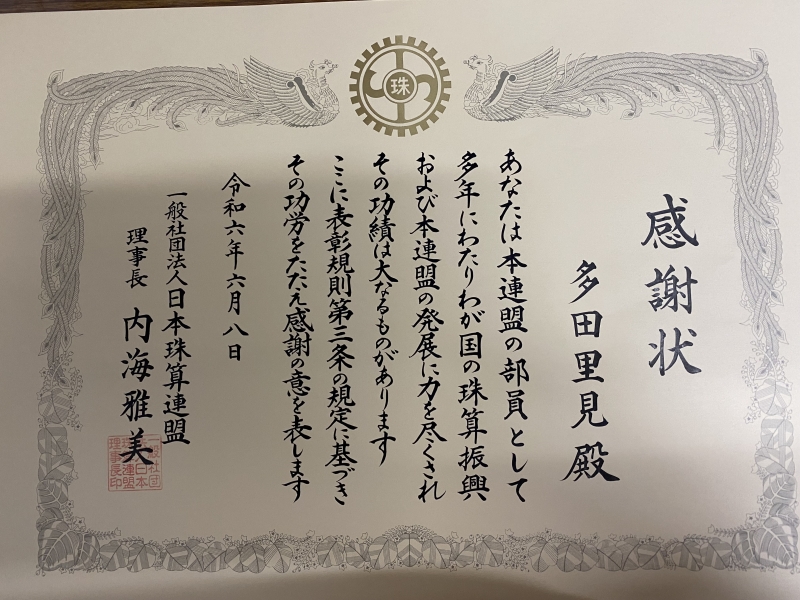 珠
感謝状
多田里見殿
あなたは本連盟の部員として
多年にわたりわが国の珠算振興
および本連盟の発展に力を尽くされ
その功績は大なるものがあります
ここに表彰規則第三条の規定に基づき
その功労をたたえ感謝の意を表します
令和六年六月八日
一般社団法人日本珠算連盟
理事長 内海雅美
一般社団
法人日本
珠算連盟
理事長印